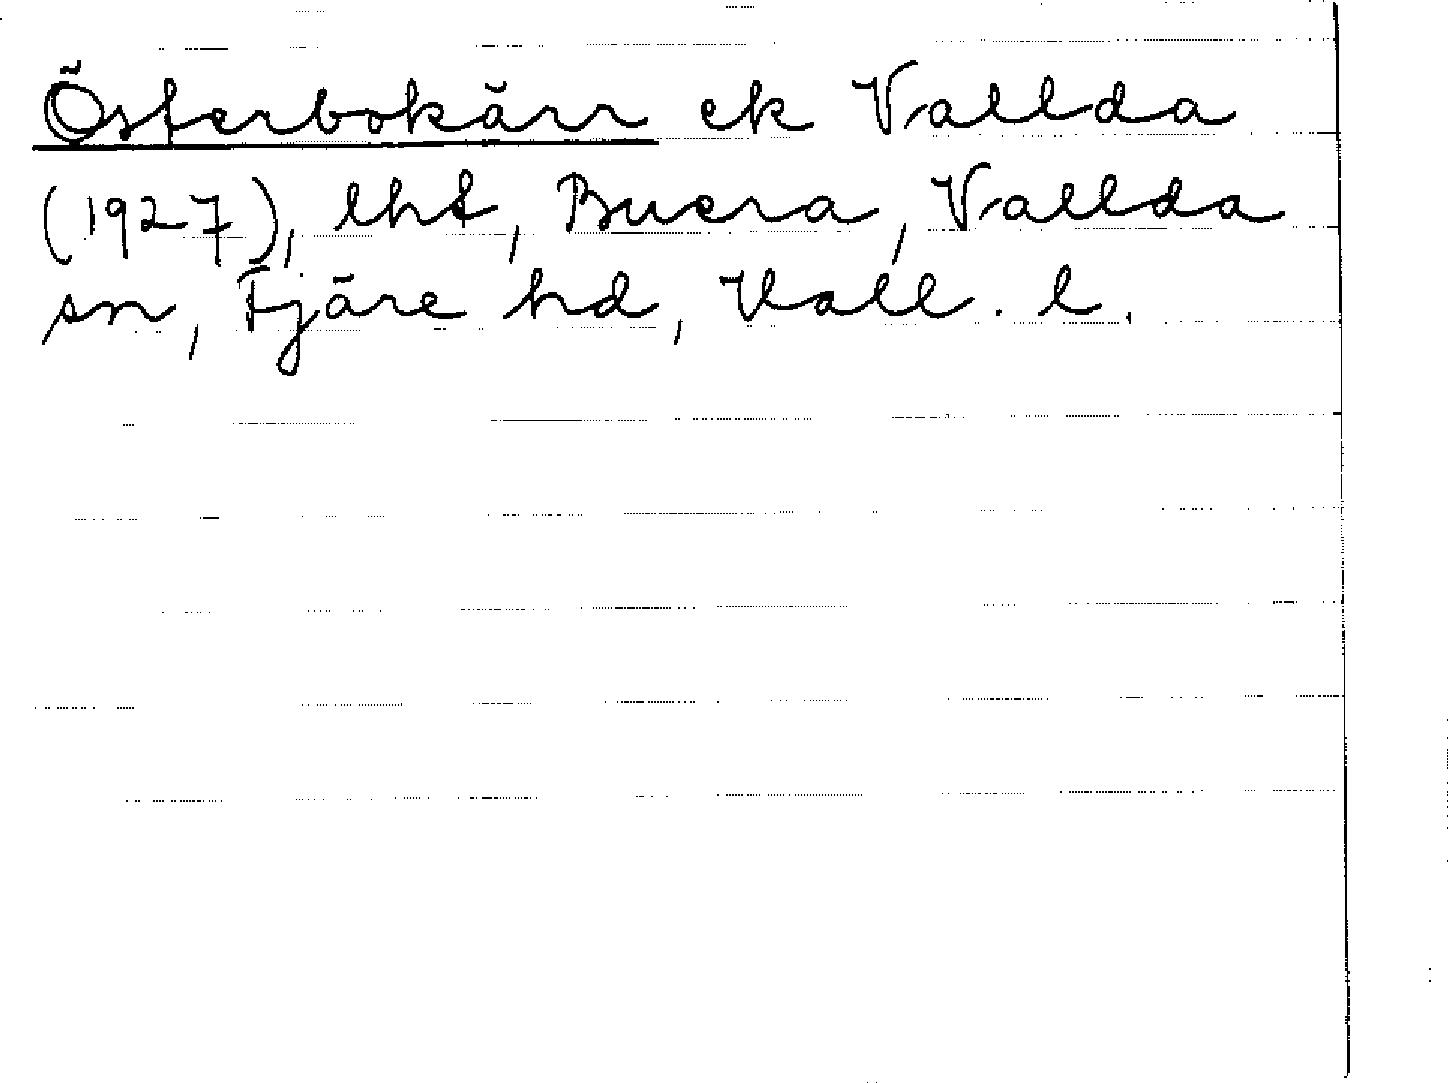 Österbokärr ek Vallda
(1927), lht, Buera, Vallda
sn, Fjäre hd, Hall. l.